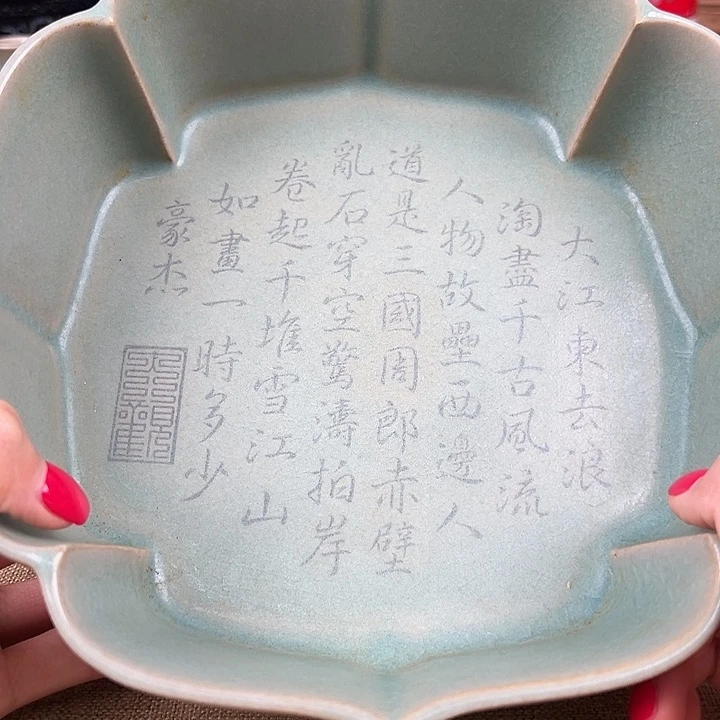 大江東去浪
淘盡千古風流
人物故壘西邊人
道是三國周郎赤壁
亂石穿空驚濤拍岸
卷起千堆雪江山
如畫一時多少
豪杰